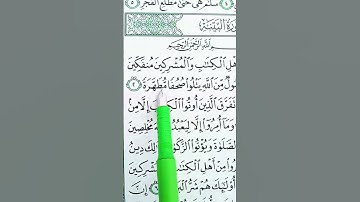 سَلَٰمٌ هِيَ حَتَّىٰ مَطْلَعِ ٱلْفَجْرِ ٥
ورَةُ البَيِّنَةِ
ٱللَّهِ ٱلرَّحْمَٰنِ ٱلرَّحِيمِ
هْلِ ٱلْكِتَٰبِ وَٱلْمُشْرِكِينَ مُنفَكِّينَ
ولٌ مِّنَ ٱللَّهِ يَتْلُوا۟ صُحُفًا مُّطَهَّرَةً ٢
تَفَرَّقَ ٱلَّذِينَ أُوتُوا۟ إِلَّا مِنۢ
وَمَآ أُمِرُوٓا۟ إِلَّا لِيَعْبُدُ مُخْلِصِينَ
ٱلصَّلَوٰةَ وَيُؤْتُوا۟ ٱلزَّكَوٰةَ لِكَ دِينُ
رُوا۟ مِنْ أَهْلِ ٱلْكِتَٰ شْرِكِينَ
أُو۟لَٰٓئِكَ هُمْ شَرُّ ٱلْبَرِ إِنَّ